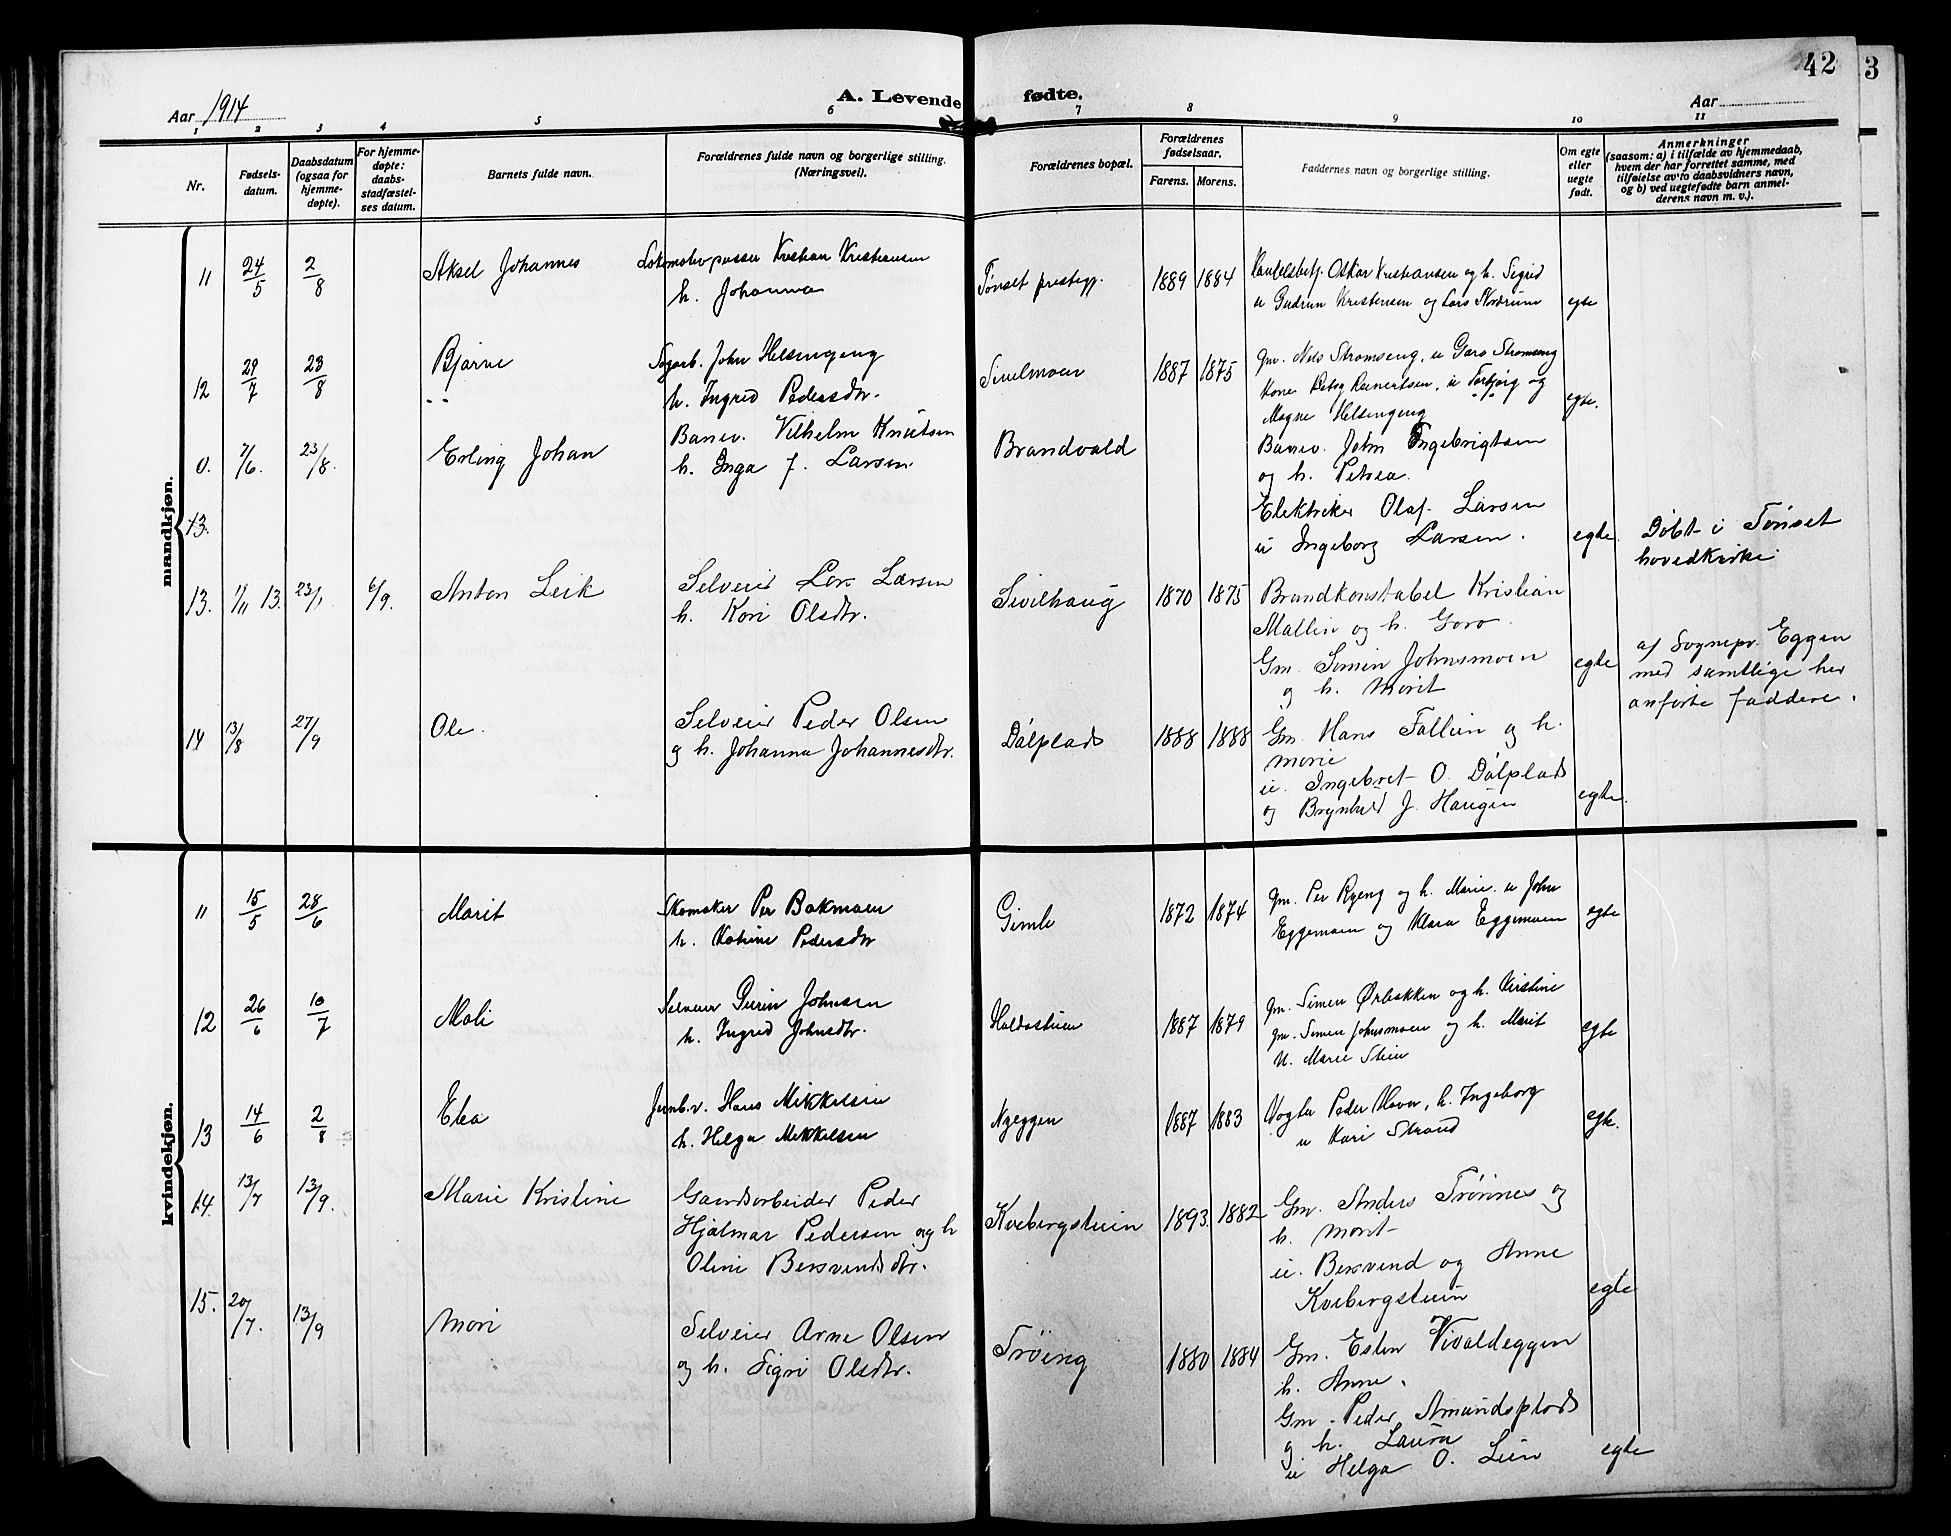 42
3
Aar 1914
A. Levende fødte.
Aar
1 2 3 4 5 6 7 8 9 10 11
Nr.
Fødsels-
datum.
Daabsdatum
(ogsaa for
hjemme-
døpte).
For hjemme-
døpte:
daabs-
stadfæstel-
ses datum.
Barnets fulde navn.
Forældrenes fulde navn og borgerlige stilling.
(Næringsvei).
Forældrenes bopæl.
Forældrenes
fødselsaar.
Farens. Morens.
Faddernes navn og borgerlige stilling.
Om egte
eller
uegte
født.
Anmerkninger
(saasom: a) i tilfælde av hjemmedaab,
hvem der har forrettet samme, med
tilføielse av to daabsvidners navn,
og b) ved uegtefødte barn anmel-
derens navn m. v.).
mandkjøn.
11 24/5 2/8 Aksel Johannes Lokomotivpusser Kristian Kristiansen
h. Johanna
Tønset prestegj. 1889 1884
Oskar Kristiansen og h. Sigrid
u Gudrun Kristensen og Lars
egte
12 29/7 23/8 Bjarne
Sagarb. John Helsingeng
h. Ingrid Pedersdtr.
1887 1875
Gm. Nils Strømseng, u Goro Strømseng
Kone Reinertsen, u Torbjørg og
Magne Helsingeng
egte.
0. 7/6. 23/8. Erling Johan
Banev. Vilhelm Knutsen
h. Inga f. Larsen
Brandvold
Banev. John Ingebrigtsen
og h. Petrea.
13.
Elektriker Olaf Larsen
u Ingeborg Larsen.
egte.
Døbt i Tønset
hovedkirke
13. 1/11 13. 23/1 6/9. Anton Leik
Selveier Lars Larsen
h. Kari Olsdtr.
Sivilhaug 1870 1875
Brandkonstabel Kristian
Mallin og h. Goro.
Gm. Simen Johnsmoen
og h. Marit
egte
af Sognepr. Eggen
med samtlige her
anførte faddere.
14 13/8 27/9 Ole.
Selveier Peder Olsen
og h. Johanna Johannesdtr.
Dalplads 1888 1888
Gm. Hans Fallien og h.
Marie
u. Ingebret O. Dalplads
og Brynhild J. Haugen
egte.
kvindekjøn.
11 15/5 28/6 Marit
Skomaker Per Bakmoen
h. Katrine Pedersdtr
Gimle 1872 1874
Gm. Per Ryeng og h. Marie. u John
Eggemoen og Klara Eggemoen
egte
12 26/6 10/7 Mali
Selveier Johnsen
h. Ingrid Johnsdtr.
Haldostuen 1887 1879
Gm. Simen Ørbekken og h. Kirstine
Gm. Simen Johnsmoen og h. Marit
U. Marie Stuen
egte
13 14/6 2/8
Jernb.v. Hans Mikkelsen
h. Helga Mikkelsen
Nyeggen 1887 1883
Vogter Peder h. Ingeborg
u Kari Strand
egte.
14. 13/7 13/9. Marie Kristine
Gaardsarbeider Peder
Hjalmar Pedersen og h
Oline Bersvendsdtr.
Kvebergstuen 1893. 1882
Gm. Anders Trønnes og
h. Marit
u. Bersvend og Anne
Kvebergstuen
egte
15. 20/7. 13/9 Mari
Selveier Arne Olsen
og h. Sigri Olsdtr.
Trøeng 1880 1884
Gm. Esten Vivaldeggen
h. Anne.
Gm. Peder Amundsplads
og h. Laura
u Helga O. Lien
egte